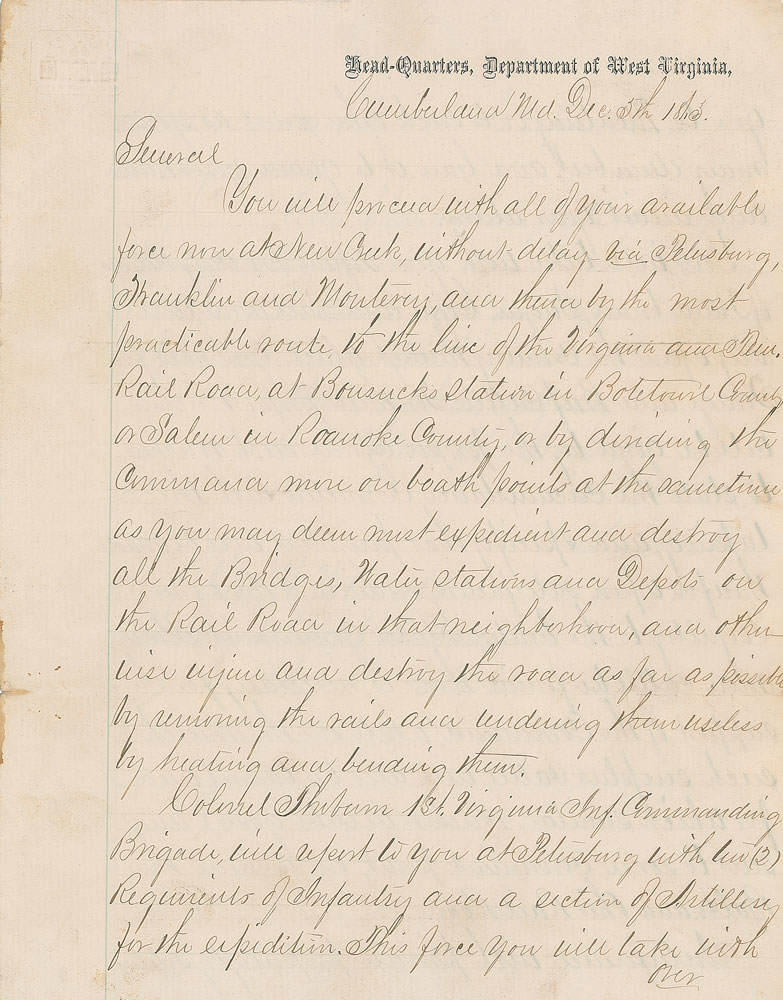 Head-Quarters, Department of West Virginia,
Cumberland Md. Dec. 5th 1863.
General
You will proceed with all of your available
force now at New Creek, without delay via Petersburg,
Franklin and Monterey, and thence by the most
practicable route, to the line of the Virginia and Tenn.
Rail Road, at Bonsacks Station in Botetourt County
or Salem in Roanoke County, or by dividing the
Command move on boath points at the same time
as you may deem most expedient and destroy
all the Bridges, Water stations and Depots on
the Rail Road in that neighborhood, and other-
wise injure and destroy the road as far as possible
by removing the rails and rendering them useless
by heating and bending them.
Colonel Thoburn 1st. Virginia Inf. Commanding
Brigade, will report to you at Petersburg with two (2)
Regiments of Infantry and a section of Artillery
for the expedition. This force you will take with
over